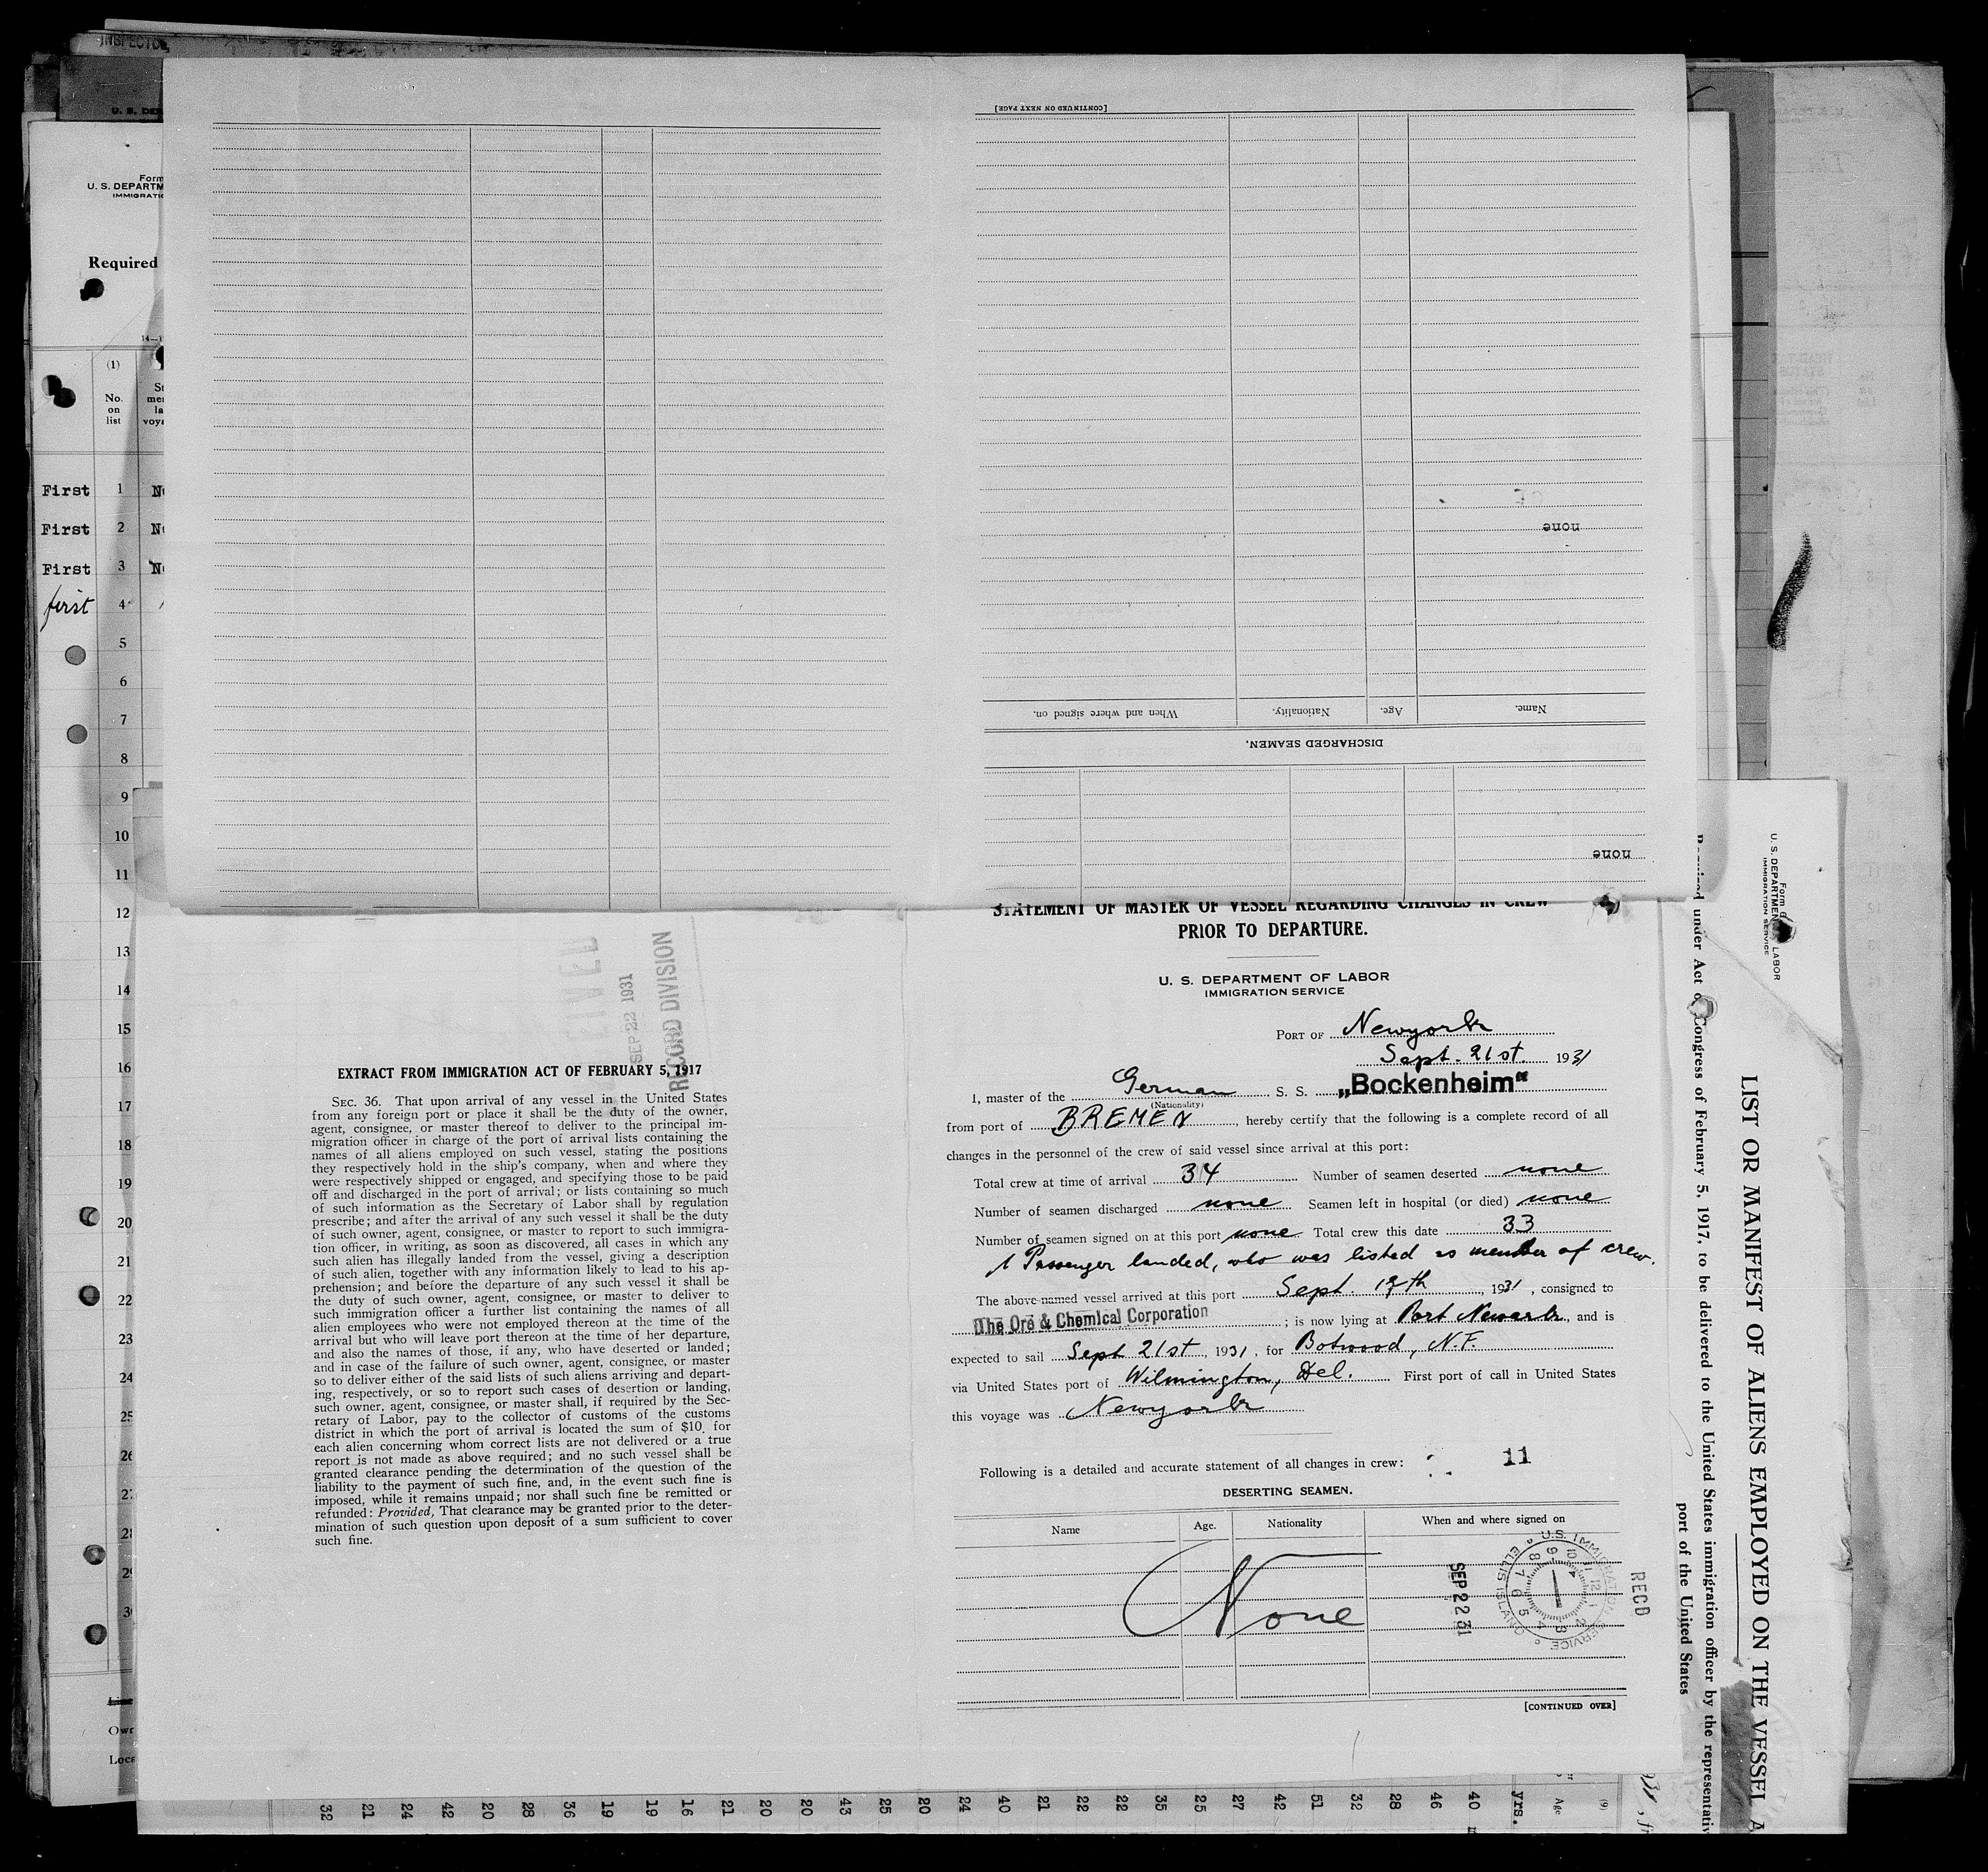 INSPECTOR
U. S. DEP
Form
U. S. DEPARTM
IMMIGRATIO
Required
14—1
(1)
No.
on
list
St
mer
la
voya
First 1 No
First 2 No
First 3 No
first 4
5
6
7
8
9
10
11
12
13
14
15
16
17
18
19
20
21
22
23
24
25
26
27
28
29
30
Line
Own
Loca
[CONTINUED ON NEXT PAGE]
none
Name.
Age.
Nationality.
When and where signed on.
DISCHARGED SEAMEN.
none
SEP 22 1931
RECORD DIVISION
EXTRACT FROM IMMIGRATION ACT OF FEBRUARY 5, 1917
SEC. 36. That upon arrival of any vessel in the United States
from any foreign port or place it shall be the duty of the owner,
agent, consignee, or master thereof to deliver to the principal im-
migration officer in charge of the port of arrival lists containing the
names of all aliens employed on such vessel, stating the positions
they respectively hold in the ship's company, when and where they
were respectively shipped or engaged, and specifying those to be paid
off and discharged in the port of arrival; or lists containing so much
of such information as the Secretary of Labor shall by regulation
prescribe; and after the arrival of any such vessel it shall be the duty
of such owner, agent, consignee, or master to report to such immigra-
tion officer, in writing, as soon as discovered, all cases in which any
such alien has illegally landed from the vessel, giving a description
of such alien, together with any information likely to lead to his ap-
prehension; and before the departure of any such vessel it shall be
the duty of such owner, agent, consignee, or master to deliver to
such immigration officer a further list containing the names of all
alien employees who were not employed thereon at the time of the
arrival but who will leave port thereon at the time of her departure,
and also the names of those, if any, who have deserted or landed;
and in case of the failure of such owner, agent, consignee, or master
so to deliver either of the said lists of such aliens arriving and depart-
ing, respectively, or so to report such cases of desertion or landing,
such owner, agent, consignee, or master shall, if required by the Sec-
retary of Labor, pay to the collector of customs of the customs
district in which the port of arrival is located the sum of $10 for
each alien concerning whom correct lists are not delivered or a true
report is not made as above required; and no such vessel shall be
granted clearance pending the determination of the question of the
liability to the payment of such fine, and, in the event such fine is
imposed, while it remains unpaid; nor shall such fine be remitted or
refunded: Provided, That clearance may be granted prior to the deter-
mination of such question upon deposit of a sum sufficient to cover
such fine.
STATEMENT OF MASTER OF VESSEL REGARDING CHANGES IN CREW
PRIOR TO DEPARTURE.
U. S. DEPARTMENT OF LABOR
IMMIGRATION SERVICE
PORT OF Newyork
Sept. 21st. 1931
I, master of the German S. S. „Bockenheim“
(Nationality)
from port of BREMEN, hereby certify that the following is a complete record of all
changes in the personnel of the crew of said vessel since arrival at this port:
Total crew at time of arrival 34 Number of seamen deserted none
Number of seamen discharged none Seamen left in hospital (or died) none
Number of seamen signed on at this port none Total crew this date 33
1 Passenger landed, who was listed as member of crew.
The above-named vessel arrived at this port Sept. 19th, 1931, consigned to
The Ore & Chemical Corporation; is now lying at Port Newark, and is
expected to sail Sept 21st, 1931, for Botwood, N.F.
via United States port of Wilmington, Del. First port of call in United States
this voyage was Newyork
Following is a detailed and accurate statement of all changes in crew: 11
DESERTING SEAMEN.
Name Age. Nationality When and where signed on
None
SEP 22 31
U.S. IMMIGRATION SERVICE
ELLIS ISLAND
RECD
[CONTINUED OVER]
Form 6
U. S. DEPARTMENT LABOR
IMMIGRATION SERVICE
LIST OR MANIFEST OF ALIENS EMPLOYED ON THE VESSEL A
Required under Act of Congress of February 5, 1917, to be delivered to the United States immigration officer by the representativ
port of the United States
(9)
Age
yrs.
40
46
28
32
51
42
27
25
35
22
22
21
40
24
20
25
43
20
20
21
16
19
19
36
28
20
42
24
21
32